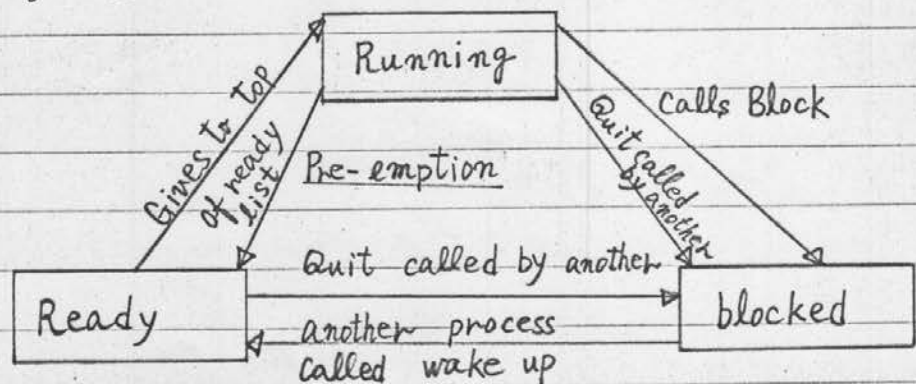 Running
Gives to top
of ready
list
Pre-emption
Quit called
by another
Calls Block
Ready
Quit called by another
another process
called wake up
blocked